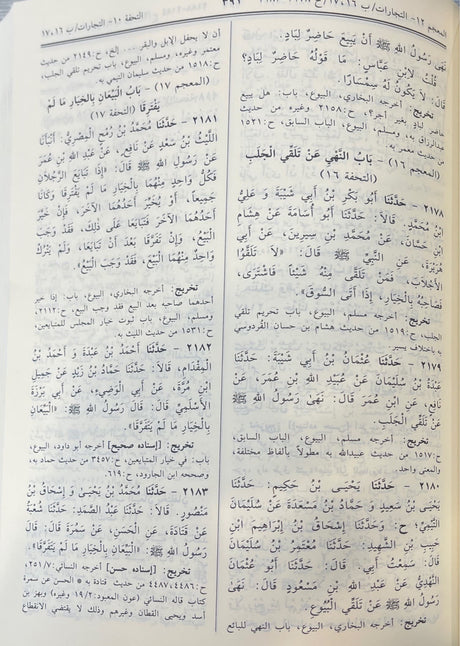 المعجم ١٢- التجارات/ ب ١٦، ١٧
٣٩١
التحفة ١٠- التجارات/ ب ١٦، ١٧
نَهَى رَسُولُ اللهِ ﷺ أَنْ يَبِيعَ حَاضِرٌ لِبَادٍ.
قُلْتُ لِابْنِ عَبَّاسٍ: مَا قَوْلُهُ حَاضِرٌ لِبَادٍ؟
قَالَ: لَا يَكُونُ لَهُ سِمْسَارًا.
تخريج: أخرجه البخاري، البيوع، باب: هل يبيع
حاضر لباد بغير أجر؟، ح:٢١٥٨ وغيره من حديث
عبدالرزاق به، ومسلم، البيوع، الباب السابق، ح:١٥٢١
من حديث معمر به.
(المعجم ١٦) - بَابُ النَّهْيِ عَنْ تَلَقِّي الْجَلَبِ
(التحفة ١٦)
٢١٧٨ - حَدَّثَنَا أَبُو بَكْرِ بْنُ أَبِي شَيْبَةَ وَ عَلِيُّ
ابْنُ مُحَمَّدٍ. قَالَا: حَدَّثَنَا أَبُو أُسَامَةَ عَنْ هِشَامِ
ابْنِ حَسَّانَ، عَنْ مُحَمَّدِ بْنِ سِيرِينَ، عَنْ أَبِي
هُرَيْرَةَ، عَنِ النَّبِيِّ ﷺ قَالَ: «لَا تَلَقَّوُا
الْأَجْلَابَ، فَمَنْ تَلَقَّى مِنْهُ شَيْئًا فَاشْتَرَى،
فَصَاحِبُهُ بِالْخِيَارِ، إِذَا أَتَى السُّوقَ».
تخريج: أخرجه مسلم، البيوع، باب تحريم تلقي
الجلب، ح:١٥١٩ من حديث هشام بن حسان القردوسي
به باختلاف يسير.
٢١٧٩ - حَدَّثَنَا عُثْمَانُ بْنُ أَبِي شَيْبَةَ: حَدَّثَنَا
عَبْدَةُ بْنُ سُلَيْمَانَ عَنْ عُبَيْدِ اللهِ بْنِ عُمَرَ، عَنْ
نَافِعٍ، عَنِ ابْنِ عُمَرَ قَالَ: نَهَى رَسُولُ اللهِ ﷺ
عَنْ تَلَقِّي الْجَلَبِ.
تخريج: أخرجه مسلم، البيوع، الباب السابق،
ح:١٥١٧ من حديث عبيدالله به مطولاً بألفاظ مختلفة،
والمعنى واحد.
٢١٨٠ - حَدَّثَنَا يَحْيَى بْنُ حَكِيمٍ: حَدَّثَنَا
يَحْيَى بْنُ سَعِيدٍ وَ حَمَّادُ بْنُ مَسْعَدَةَ عَنْ سُلَيْمَانَ
التَّيْمِيِّ؛ ح: وَحَدَّثَنَا إِسْحَاقُ بْنُ إِبْرَاهِيمَ ابْنِ
حَبِيبِ بْنِ الشَّهِيدِ: حَدَّثَنَا مُعْتَمِرُ بْنُ سُلَيْمَانَ
قَالَ: سَمِعْتُ أَبِي. قَالَ: حَدَّثَنَا أَبُو عُثْمَانَ
النَّهْدِيُّ عَنْ عَبْدِ اللهِ بْنِ مَسْعُودٍ قَالَ: نَهَى
رَسُولُ اللهِ ﷺ عَنْ تَلَقِّي الْبُيُوعِ.
تخريج: أخرجه البخاري، البيوع، باب النهي للبائع
أن لا يحفل الإبل والبقر ... إلخ، ح:٢١٤٩ من حديث
معتمر وغيره، ومسلم، البيوع، باب تحريم تلقي الجلب،
ح:١٥١٨ من حديث سليمان التيمي به.
(المعجم ١٧) - بَابُ الْبَيِّعَانِ بِالْخِيَارِ مَا لَمْ
يَفْتَرِقَا (التحفة ١٧)
٢١٨١ - حَدَّثَنَا مُحَمَّدُ بْنُ رُمْحٍ الْمِصْرِيُّ: أَنْبَأَنَا
اللَّيْثُ بْنُ سَعْدٍ عَنْ نَافِعٍ، عَنْ عَبْدِ اللهِ بْنِ عُمَرَ
عَنْ رَسُولِ اللهِ ﷺ قَالَ: «إِذَا تَبَايَعَ الرَّجُلَانِ
فَكُلُّ وَاحِدٍ مِنْهُمَا بِالْخِيَارِ مَا لَمْ يَفْتَرِقَا وَكَانَا
جَمِيعًا، أَوْ يُخَيِّرْ أَحَدُهُمَا الْآخَرَ، فَإِنْ خَيَّرَ
أَحَدُهُمَا الْآخَرَ فَتَبَايَعَا عَلَى ذَلِكَ، فَقَدْ وَجَبَ
الْبَيْعُ، وَإِنْ تَفَرَّقَا بَعْدَ أَنْ تَبَايَعَا، وَلَمْ يَتْرُكْ
وَاحِدٌ مِنْهُمَا الْبَيْعَ، فَقَدْ وَجَبَ الْبَيْعُ».
تخريج: أخرجه البخاري، البيوع، باب: إذا خير
أحدهما صاحبه بعد البيع فقد وجب البيع، ح:٢١١٢،
ومسلم، البيوع، باب ثبوت خيار المجلس للمتبايعين،
ح:١٥٣١ من حديث الليث به.
٢١٨٢ - حَدَّثَنَا أَحْمَدُ بْنُ عَبْدَةَ وَ أَحْمَدُ بْنُ
الْمِقْدَامِ، قَالَا: حَدَّثَنَا حَمَّادُ بْنُ زَيْدٍ عَنْ جَمِيلِ
ابْنِ مُرَّةَ، عَنْ أَبِي الْوَضِيءِ، عَنْ أَبِي بَرْزَةَ
الْأَسْلَمِيِّ قَالَ: قَالَ رَسُولُ اللهِ ﷺ: «الْبَيِّعَانِ
بِالْخِيَارِ مَا لَمْ يَتَفَرَّقَا».
تخريج: [إسناده صحيح] أخرجه أبو داود، البيوع،
باب: في خيار المتبايعين، ح:٣٤٥٧ من حديث حماد به،
وصححه ابن الجارود، ح:٦١٩.
٢١٨٣ - حَدَّثَنَا مُحَمَّدُ بْنُ يَحْيَى وَ إِسْحَاقُ بْنُ
مَنْصُورٍ. قَالَا: حَدَّثَنَا عَبْدُ الصَّمَدِ: حَدَّثَنَا شُعْبَةُ
عَنْ قَتَادَةَ، عَنِ الْحَسَنِ، عَنْ سَمُرَةَ قَالَ: قَالَ
رَسُولُ اللهِ ﷺ: «الْبَيِّعَانِ بِالْخِيَارِ مَا لَمْ يَتَفَرَّقَا».
تخريج: [إسناده حسن] أخرجه النسائي: ٧/ ٢٥١،
ح:٤٤٨٦، ٤٤٨٧ من حديث قتادة به * الحسن عن سمرة
كتاب قاله النسائي (عون المعبود: ٢/ ١٩ وغيره) وبهز بن
أسد ويحيى القطان وغيرهم وذلك لا يقتضي الانقطاع